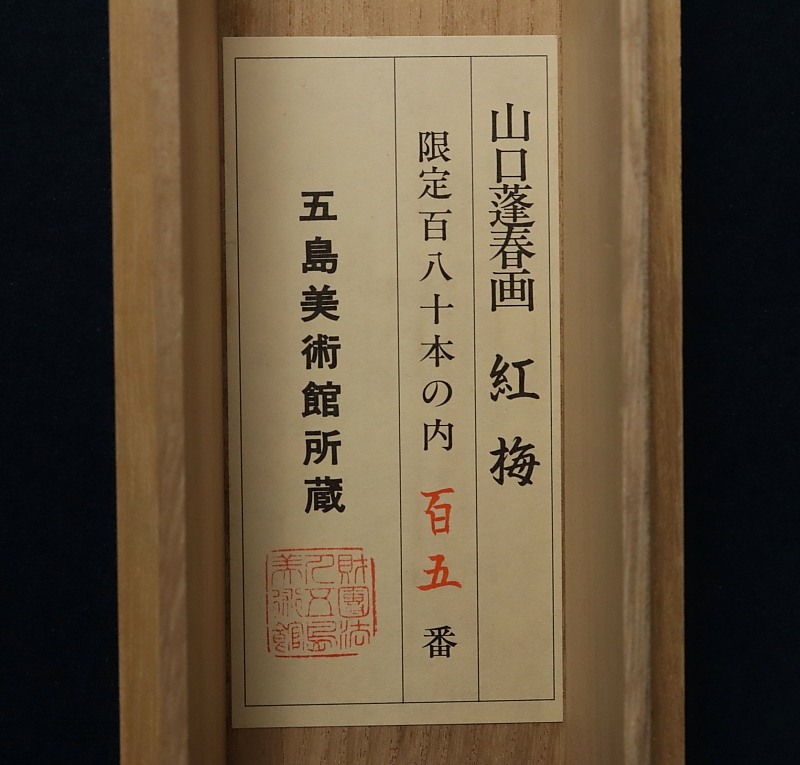 山口蓬春画 紅梅
限定百八十本の内 百五 番
五島美術館所蔵
財團法
人五島
美術館